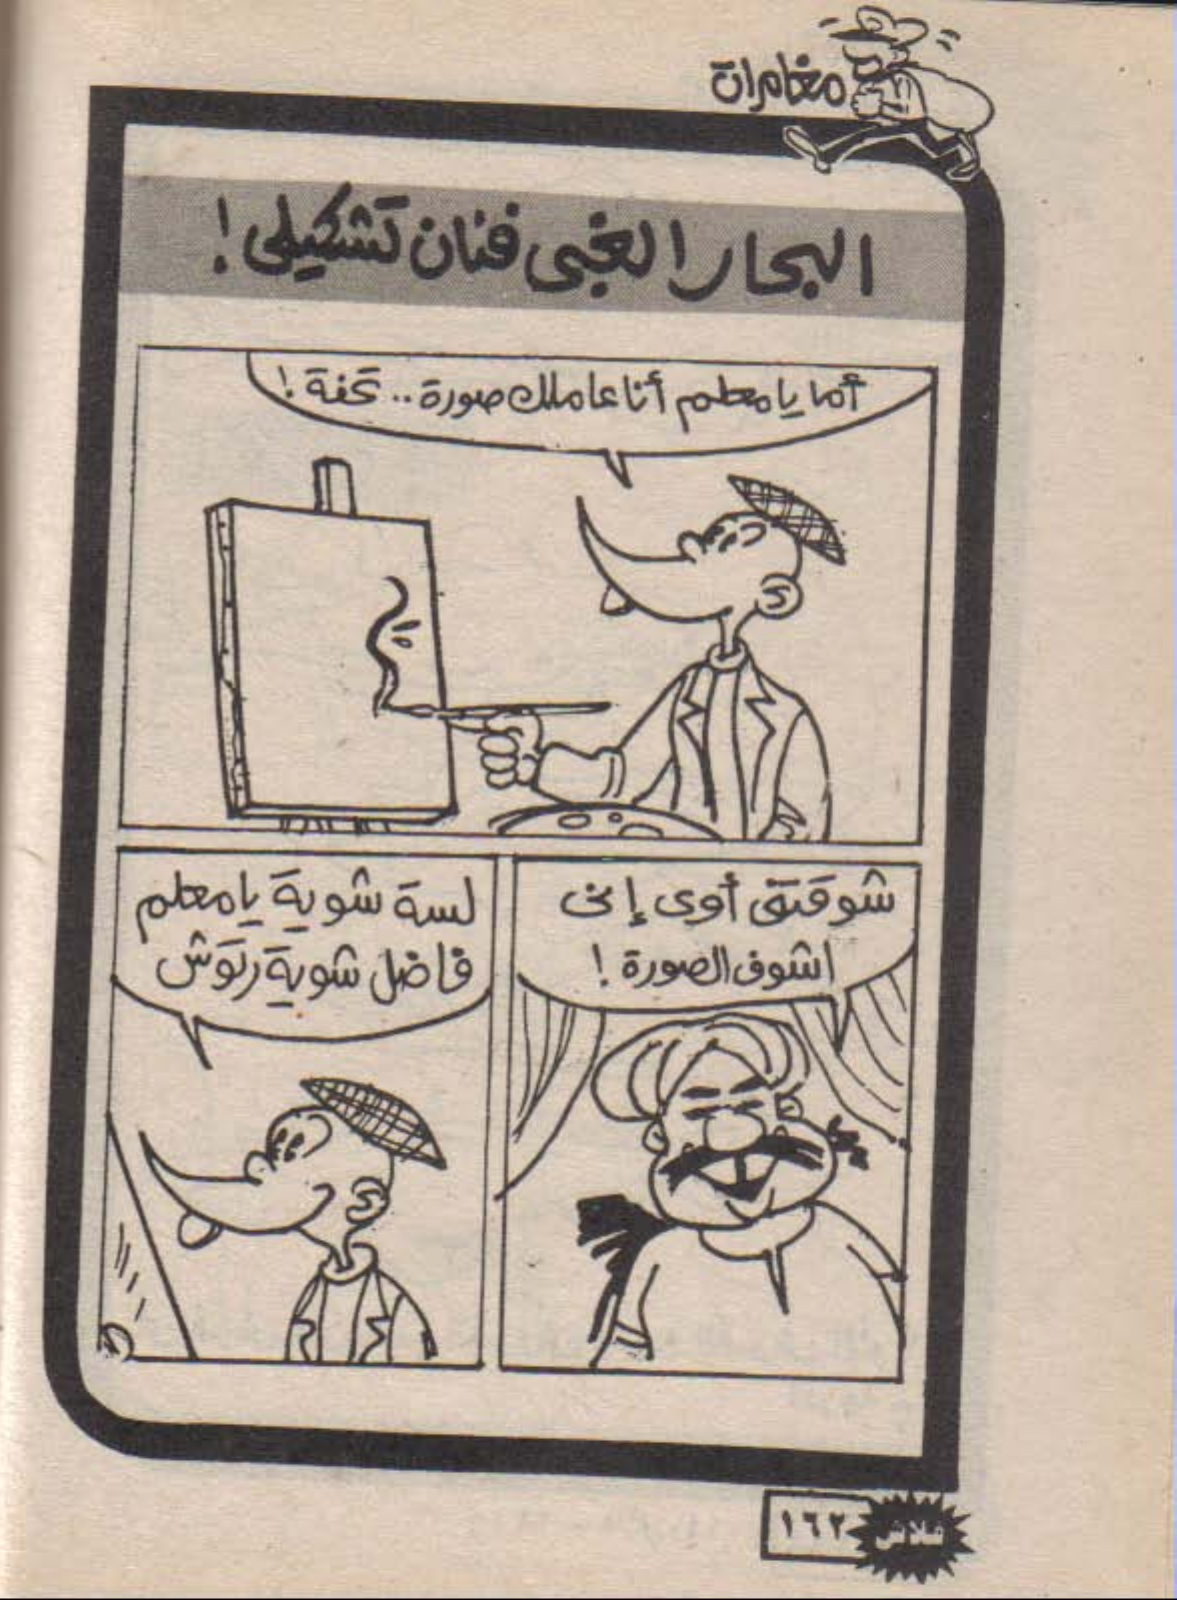 مغامرات
البحار الغبى فنان تشكيلى !
أما يا معلم أنا عاملك صورة .. تحفة !
شوقتنى أوى إنى
اشوف الصورة !
لسة شوية يا معلم
فاضل شوية رتوش
فلاش
١٦٢